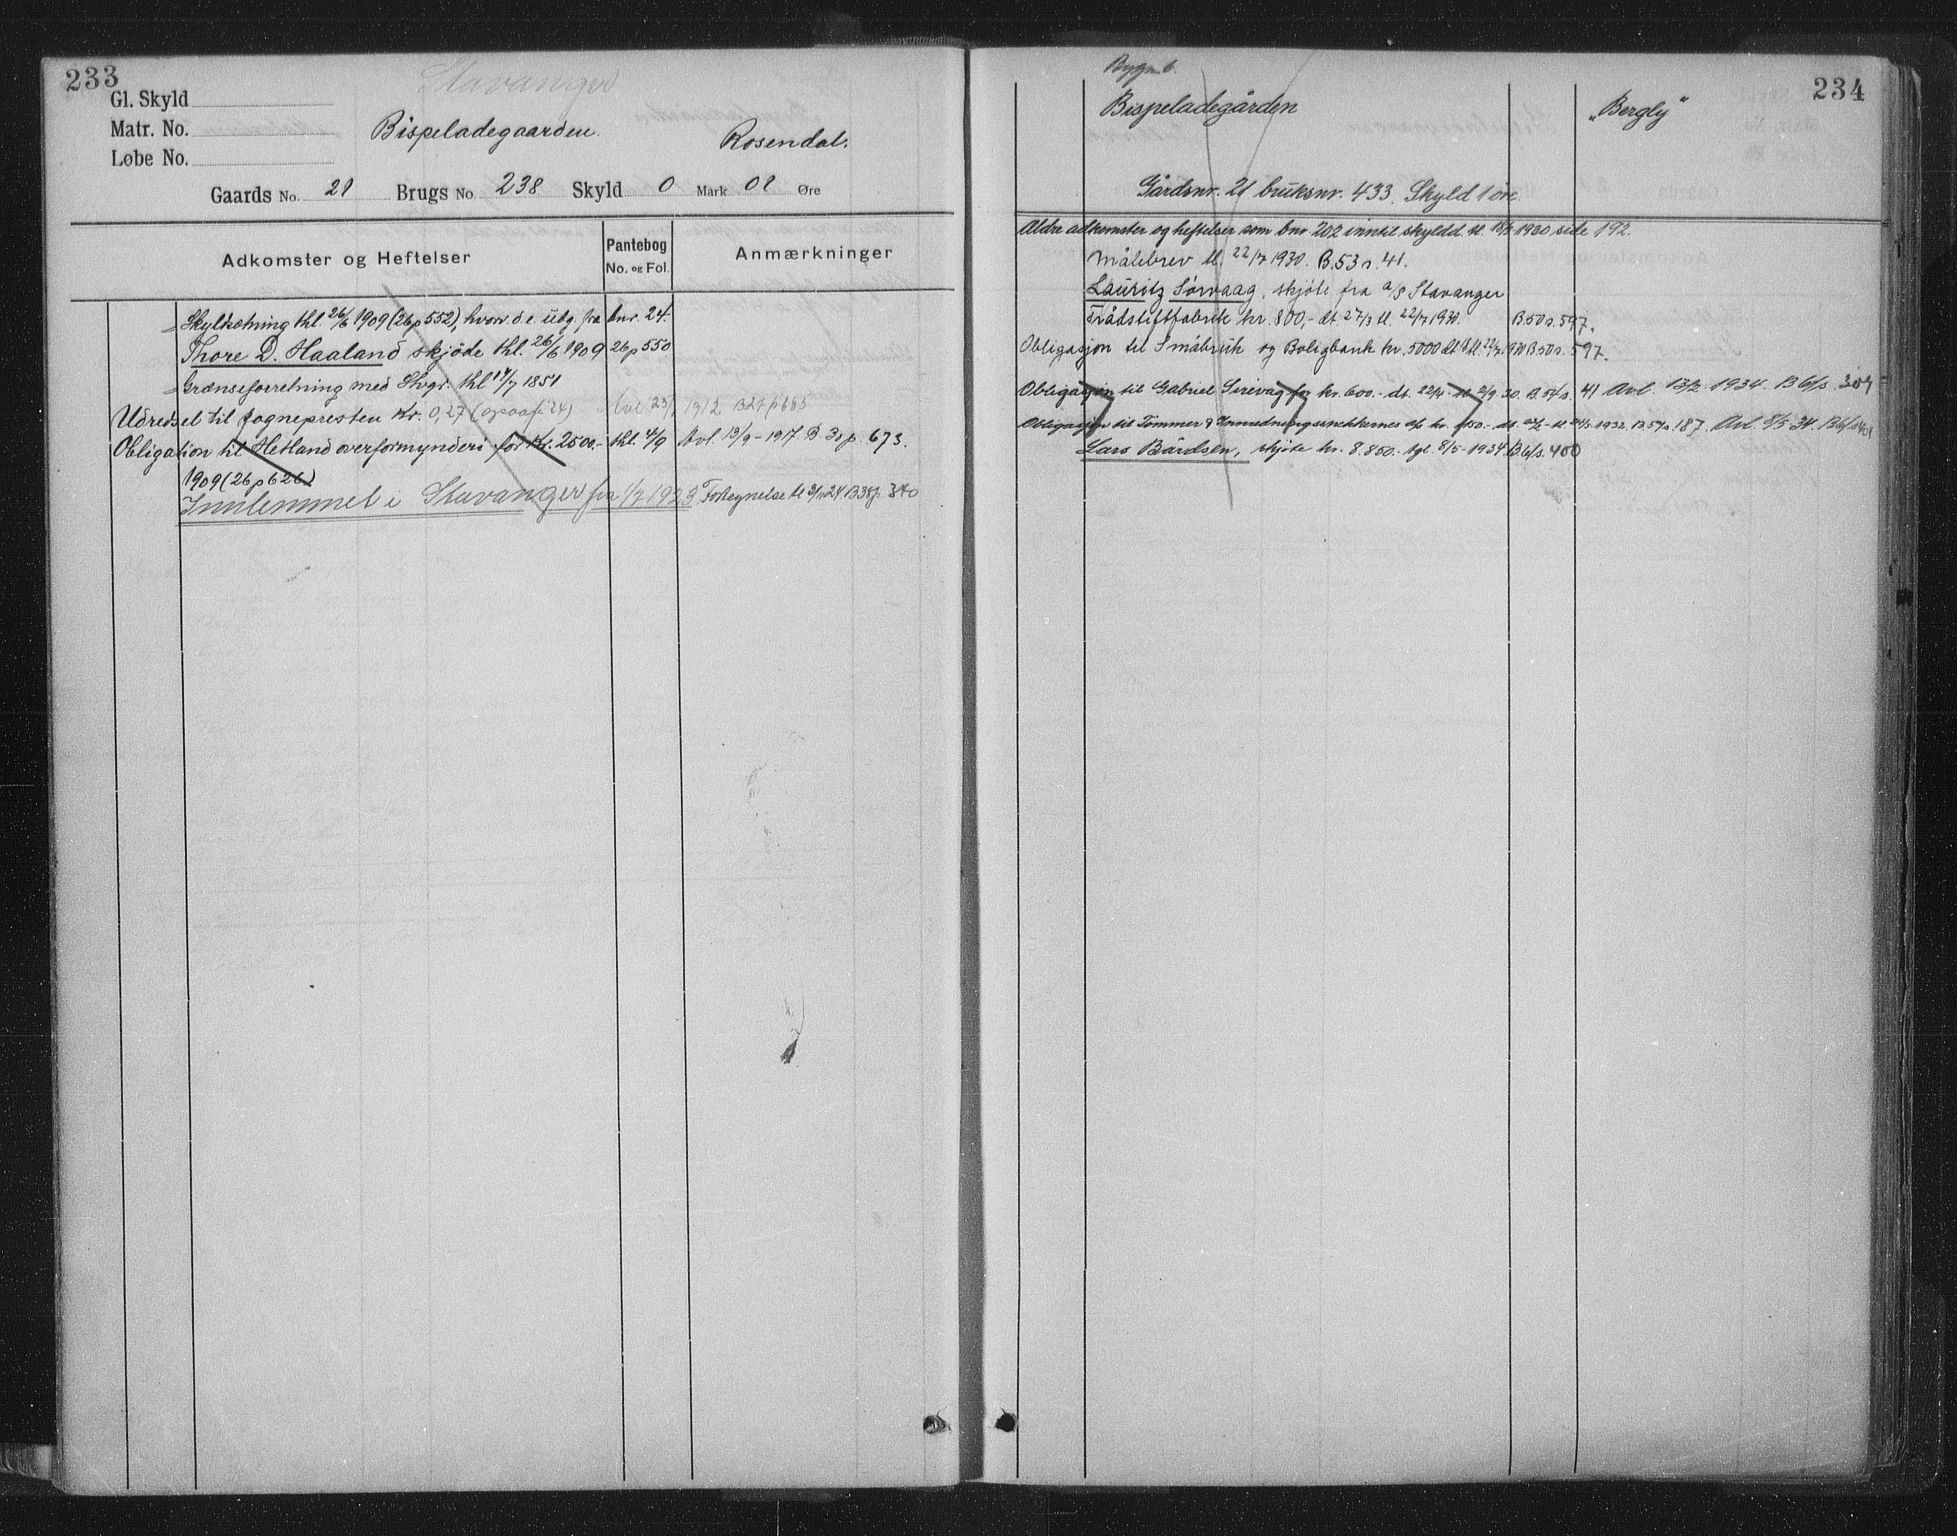 233
Stavanger
Gl. Skyld
Matr. No.
Løbe No.
Bispeladegaarden.
Rosendal.
Gaards No. 21 Brugs No. 238 Skyld 0 Mark 02 Øre
Adkomster og Heftelser
Pantebog
No. og Fol.
Anmærkninger
Skyldsetning thl. 26/6 1909 (26 p 552), hvorv. d. e. udg. fra bnr. 24.
Thore D. Haaland skjøde thl. 26/6 1909 26 p 550
Grænseforretning med Stvgr. thl 14/7 1851
Udredsel til sognepresten Kr. 0,27 (opsaafr 24) Avl 23/ 1912 B 27 p 685
Obligation til Hetland overformynderi for Kr. 2500.- thl. 4/9 Avl. 13/9 - 1917 B 30 p. 673.
1909 (26 p 626)
Innlemmet i Stavanger fra 1/7 1923 B 38 p. 340
234
Bygn. b.
Bispeladegården
„Bergly"
Gårdsnr. 21 bruksnr. 433. Skyld 1 øre
Ældre adkomster og heftelser som bnr 202 inntil skyldd. tl. 18/7 1930 side 192.
Målebrev tl. 22/7 1930. B. 53 s. 41.
Lauritz Sørvaag, skjøte fra a/s Stavanger
Trådstiftfabrik kr. 800,- dt. 27/3 tl. 22/7 1930. B. 50 s. 597.
Obligasjon til Småbruk og Boligbank kr. 5000 dt tl. 22/7 1930 B. 50 s. 597.
Obligasjon til Gabriel Sirevåg for kr. 600.- dt. 22/4 - tl. 2/9 30. B. 54 s. 41 Avl. 13/2 1934. B 61 s. 309
Obligasjon til Tømmer & Innredningssnekkernes a/s kr. 1932 B. 57 s. 187. Avl. 8/5 34. B 61 s 401
Lars Bårdsen, skjøte kr. 8.850.- tgl. 8/5 - 1934 B 61 s. 400